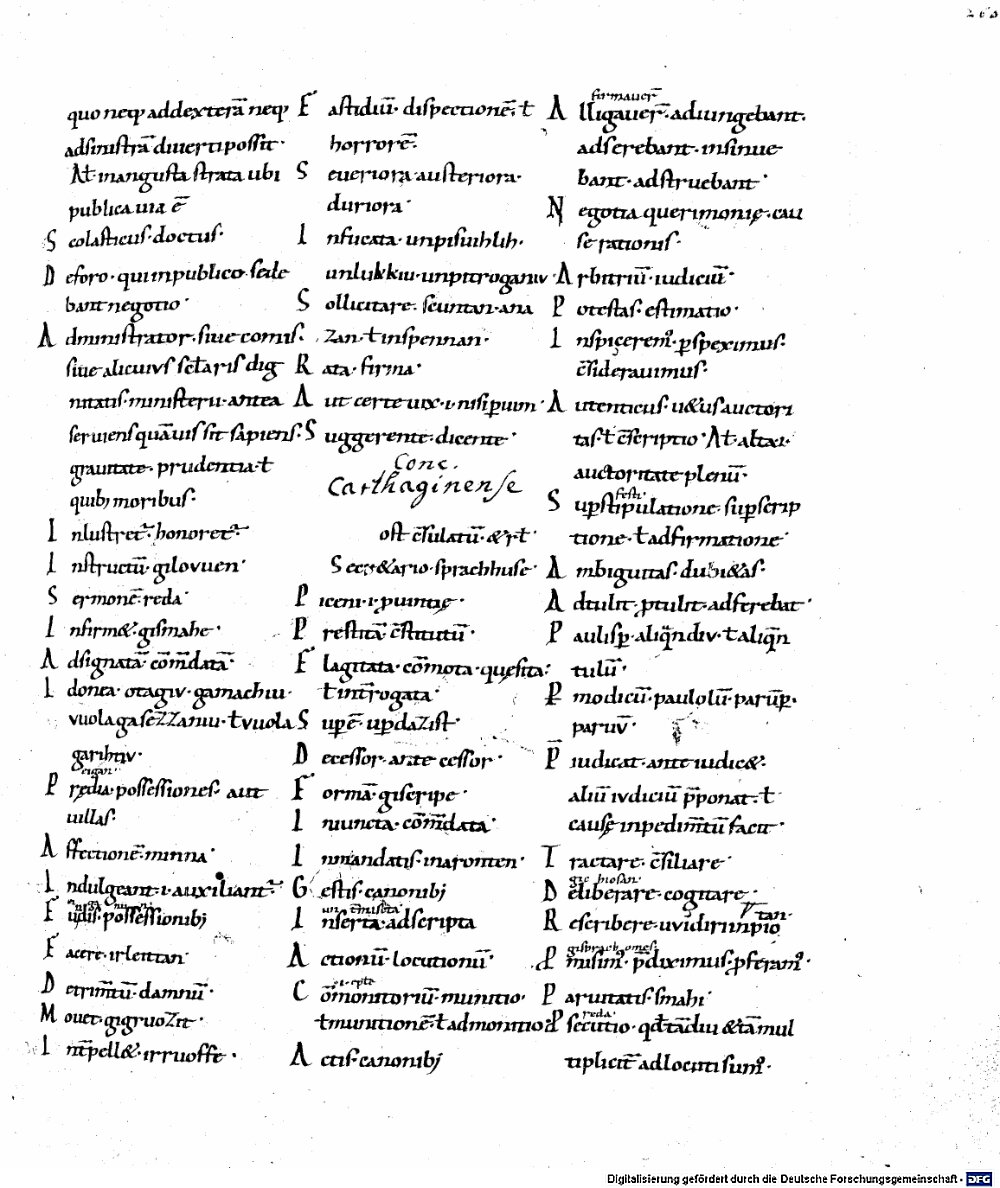 quo neq; addexterā neq;
adsinistrā diuerti possit·
At inangusta strata ubi
publica uia ē
Scolasticus· doctus·
Deforo· qui inpublico sede
bant negotio·
Administrator· siue comis·
siue alicuius sctaris dig
nitatis· ministerii· antea
seruiens quāuis sit sapiens·
grauitate· prudentia· ł
quib; moribus·
Inlustret· honoret·
Instructū· gilovuen·
Sermonē· reda·
Infirm&· gismahe·
Adsignatā· cōmdatā·
Idonea· otagiv· gamachiu·
vuolagasezzaniu· ł vuola
garihtiv·
eigan·
Predia· possessiones· aut
uillas·
Affectionē· minna·
Indulgeant· i· auxiliant·
Fudis· possessionib;
Facere· irleittan·
Detrimtū· damnū·
Mouet· gigruozit·
Intpell&· irruoffe·
Fastidiū· dispectionē· ł
horrorē·
Seueriora· austeriora·
duriora·
Infucata· unpisuihlih·
unlukkiu· unpitroganiv·
Sollicitare· scuntan· ana
zan· ł inspennan·
Rata· firma·
Aut certe uix· i· nisi parum·
Suggerente· dicente·
Conc.
Carthaginense
ost c̄sulatū· & rł
Secr&ario· sprachhuse·
Piceni· i· puintię·
Prestitā· c̄stitutū·
Flagitata· cōmota· quęsita·
ł intrrogata·
Supē· updazist·
Decessor· ante cessor·
Formā· giscripe·
Iniuncta· cōmdata·
Inmandatis· inaronten·
Gestis· canonib;
Inserta· adscripta
Actionū· locutionū·
Cōmonitoriū· munitio·
ł munitionē· ł admonitio
Actis· canonib;
firmauer̄
Alligauer̄· adiungebant·
adserebant· insinue
bant· adstruebant·
Negotia· querimonię· cau
se rationis·
Arbitriū· iudiciū·
Potestas· estimatio·
Inspicerem· pspeximus·
c̄siderauimus·
Autenticus· u&us auctori
tas· ł c̄scriptio· At· alta·
auctoritate plenū·
festi·
Supstipulatione· supscrip
tione· ł adfirmatione·
Ambiguitas· dubi&as·
Adtulit· ptulit· adferebat·
Paulisp· aliqn̄div· ł aliqn̄
tulū·
P modicū· paulolū· parūp·
parūv·
P̄iudicat· ante iudic&·
aliū iudiciū p̄ponat· ł
cause inpedimtū facit·
Tractare· c̄siliare·
gie hiosan·
Deliberare· cogitare·
Rescribere· uvidirinpio
tan·
gisprachomes·
Pmisim· p̄diximus· pferam·
Paruitatis· smahi·
reda·
Psecutio· qd tādiu & tāmul
tiplicit̄ adlocuti sum·